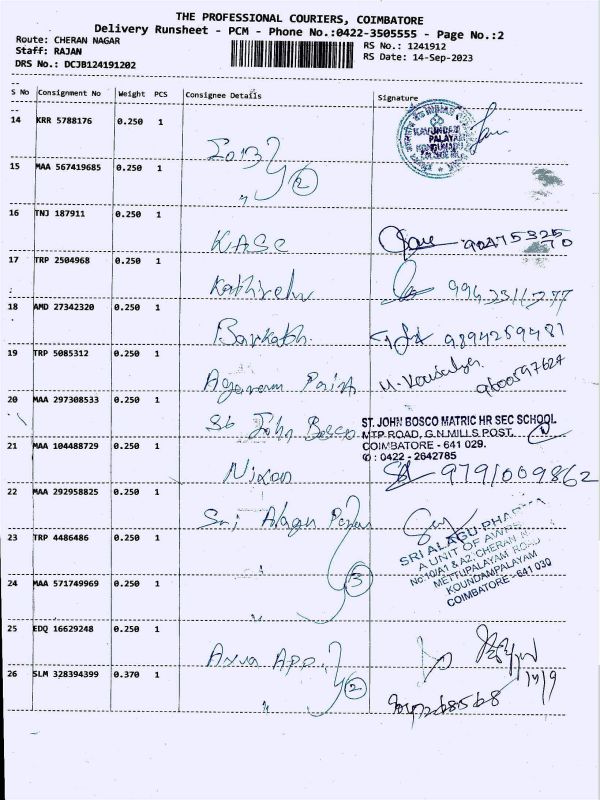 THE PROFESSIONAL COURIERS, COIMBATORE
Delivery Runsheet - PCM - Phone No.:0422-3505555 - Page No.:2
Route: CHERAN NAGAR
Staff: RAJAN
DRS No.: DCJB124191202
RS No.: 1241912
RS Date: 14-Sep-2023
S No Consignment No Weight PCS Consignee Details Signature
14 KRR 5788176 0.250 1
KAVUNDAM
PALAYAM
15 MAA 567419685 0.250 1
" 2
16 TNJ 187911 0.250 1
KASC
17 TRP 2504968 0.250 1
Kathirelu
18 AMD 27342320 0.250 1
Barkath. 9894259481
19 TRP 5085312 0.250 1
Agaram Paint
20 MAA 297308533 0.250 1
St John Bosco
ST. JOHN BOSCO MATRIC HR SEC SCHOOL
MTP ROAD, G.N.MILLS POST,
COIMBATORE - 641 029.
✆ : 0422 - 2642785
21 MAA 104488729 0.250 1
Nixon 9791009862
22 MAA 292958825 0.250 1
Sri Alagu
SRI ALAGU
A UNIT OF
No:10/A1 & A2, CHERAN
METTUPALAYAM ROAD
KOUNDAMPALAYAM
COIMBATORE - 641 030
23 TRP 4486486 0.250 1
3
24 MAA 571749969 0.250 1
"
25 EDQ 16629248 0.250 1
26 SLM 328394399 0.370 1
" 2
14/9